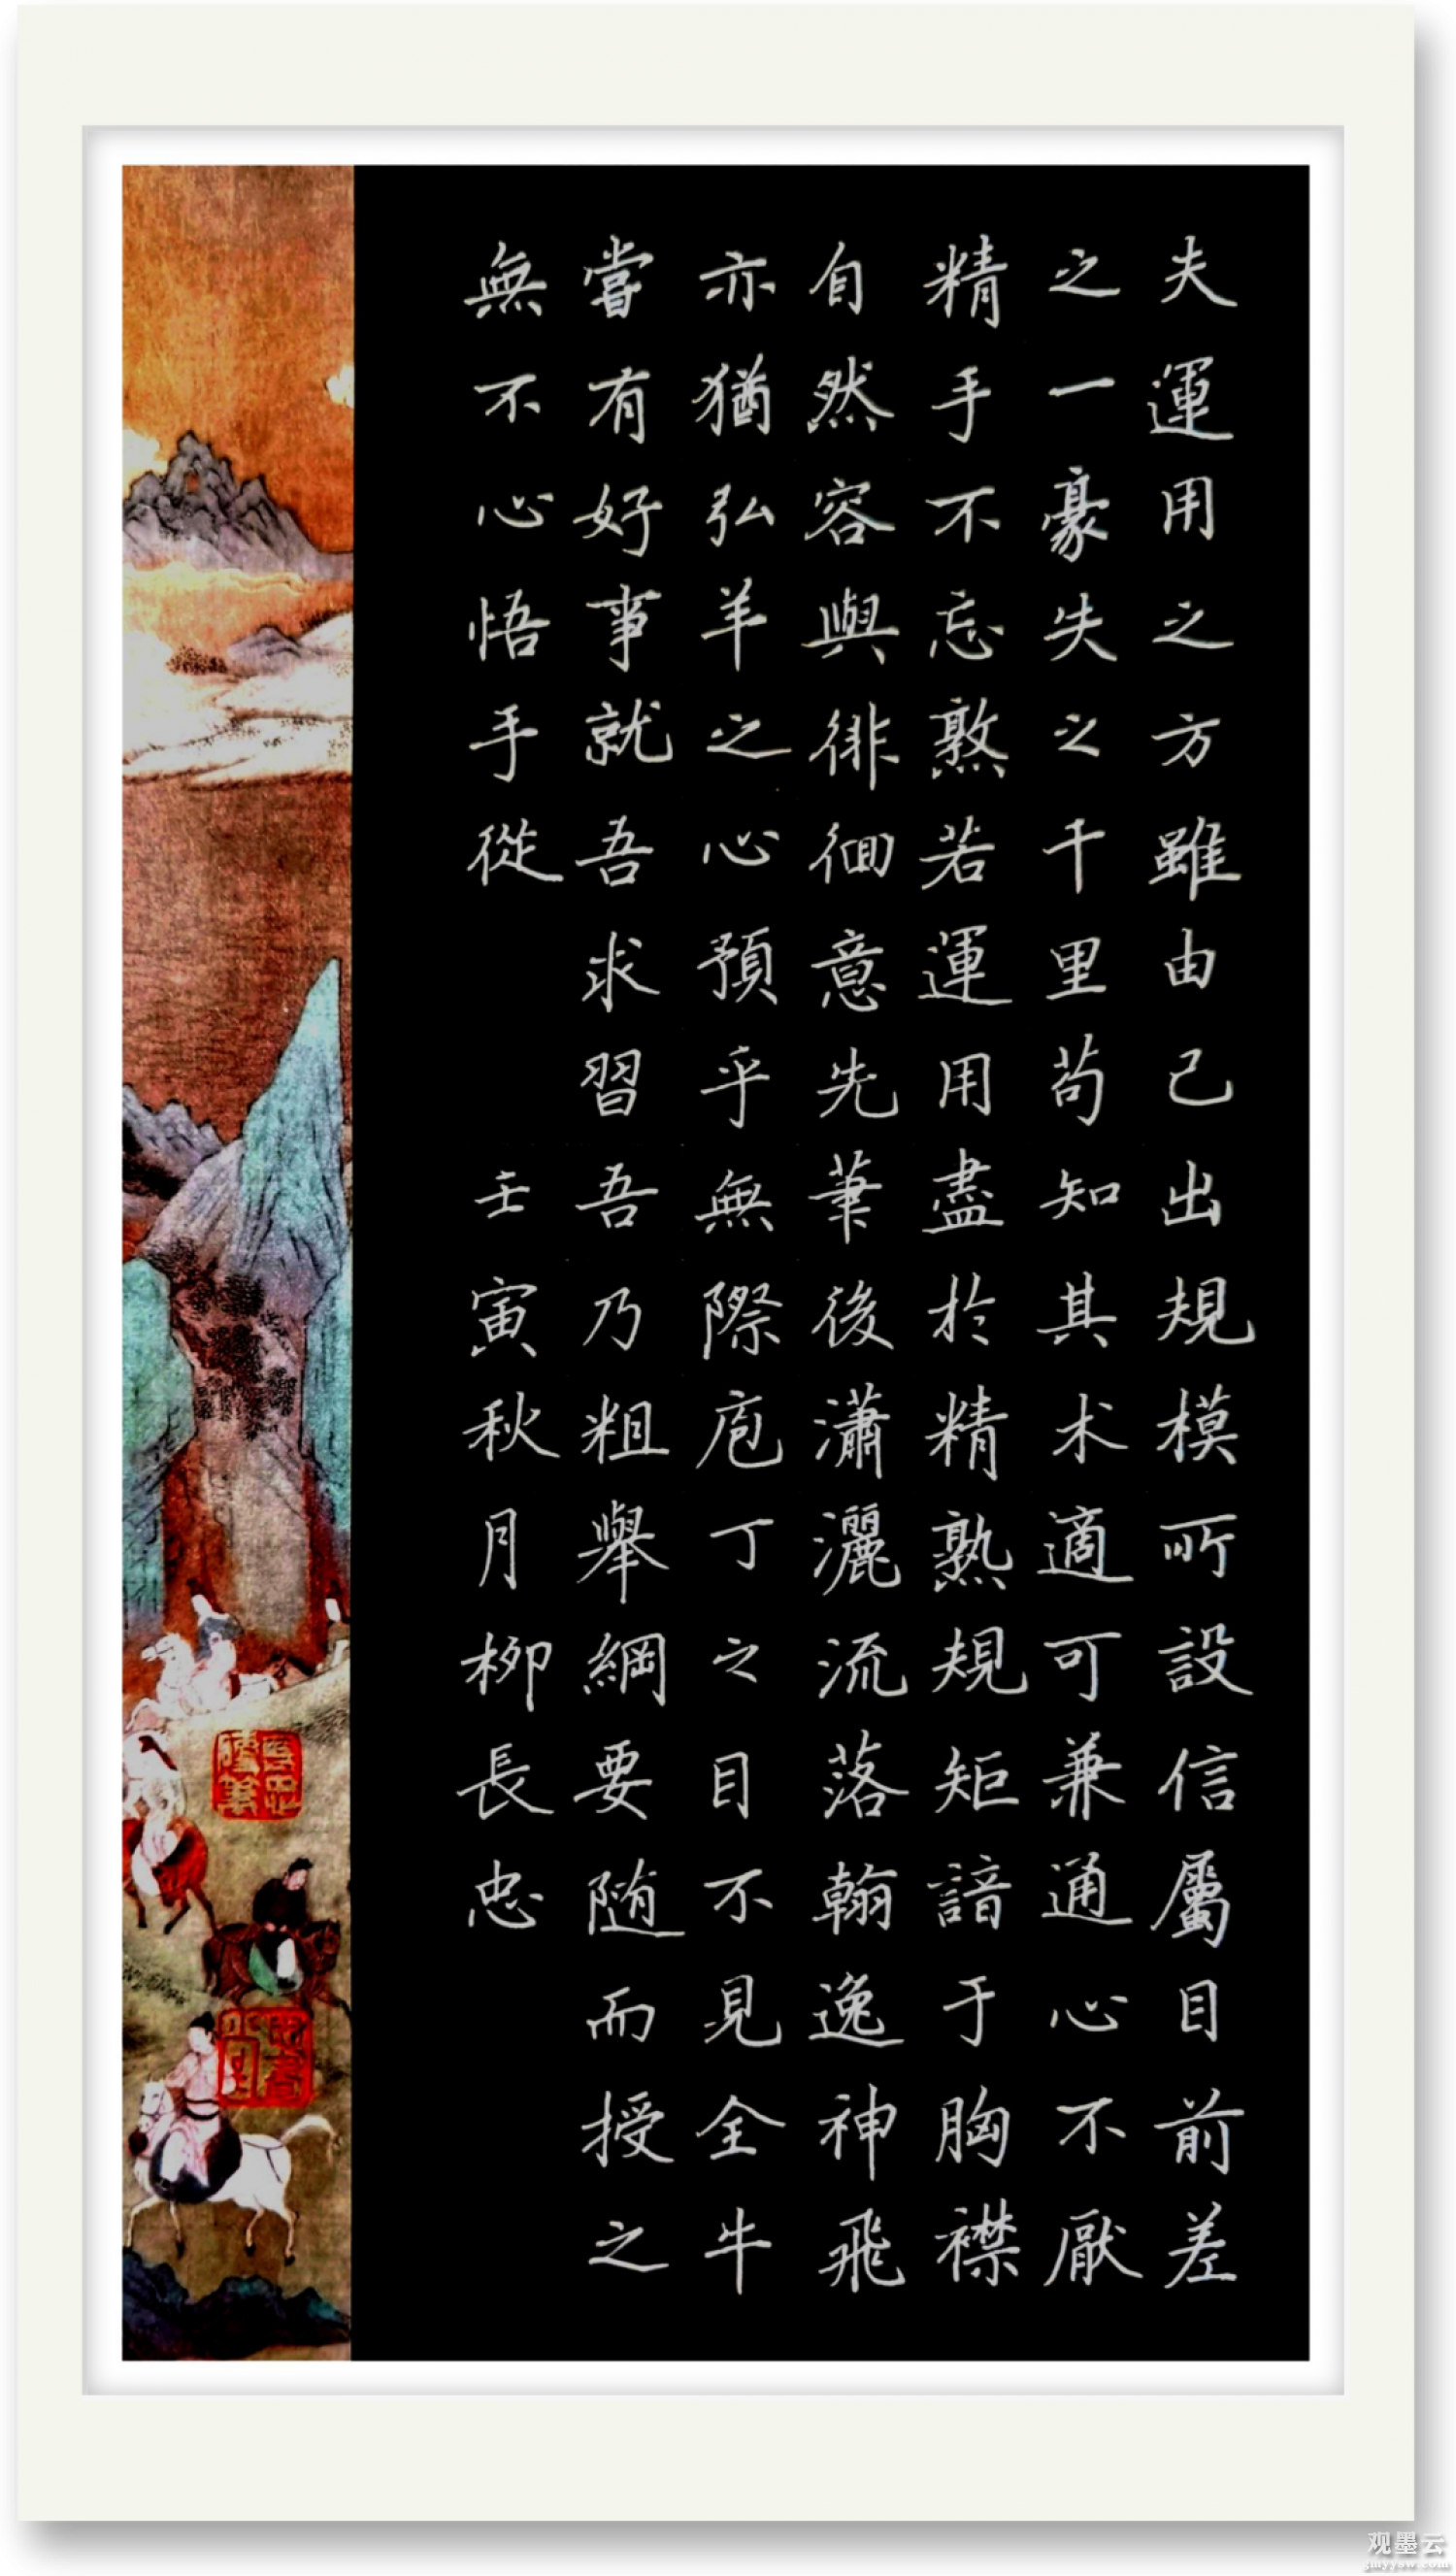 夫運用之方雖由己出規模所設信屬目前差
之一豪失之千里苟知其术適可兼通心不厭
精手不忘熟若運用盡於精熟規矩諳于胸襟
自然容與徘徊意先筆後瀟灑流落翰逸神飛
亦猶弘羊之心預乎無際庖丁之目不見全牛
嘗有好事就吾求習吾乃粗舉綱要随而授之
無不心悟手從
壬寅秋月柳長忠
观墨云
gmyysw.com